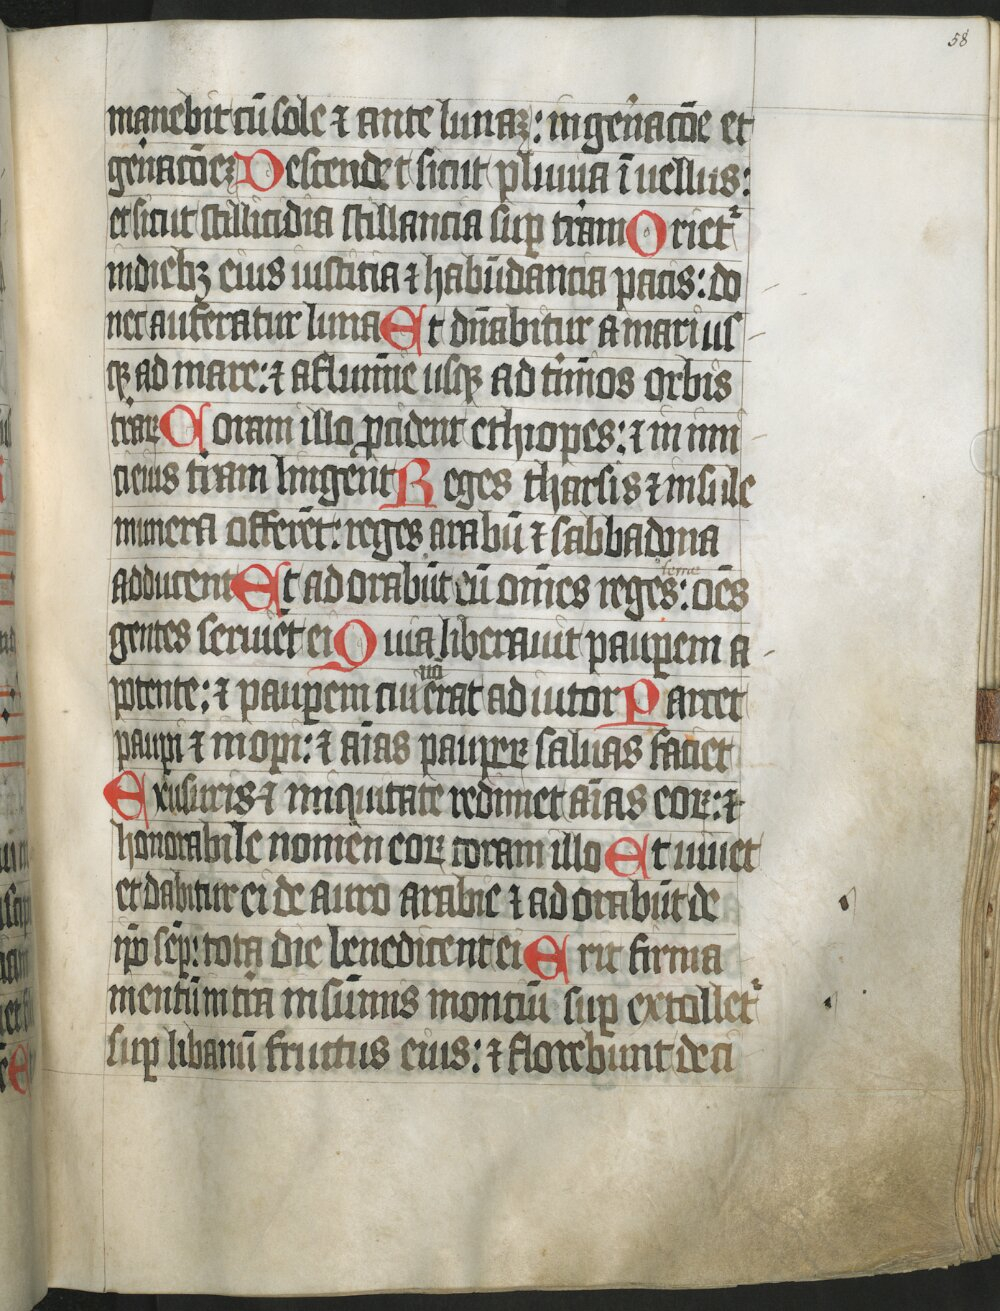 58
manebit cū sole ⁊ ante lunaꝫ: in gen̄acōe et
gen̄acōeꝫ Descendet sicut pluuia ī uellus:
et sicut stillicidia stillancia suꝑ t̄ram Oriet᷑
in diebꝫ eius iusticia ⁊ habūdancia pacis: do
nec auferatur luna Et dn̄abitur a mari us
qꝫ ad mare: ⁊ a flumīe usqꝫ ad t̄mīos orbis
t̄raꝝ Coram illo ꝓcident ethiopes: ⁊ inimi
ci eius t̄ram lingent Reges tharsis ⁊ insule
munera offerēt: reges arabū ⁊ sabba dona
adducent Et adorabūt eū om̄es reges: oēs
terrae
gentes seruiēt ei Quia liberauit pauꝑem a
potente: ⁊ pauꝑem cui erat adiutor Parcet
nō
pauꝑi ⁊ inopi: ⁊ aīas pauꝑeꝝ saluas faciet
Ex usuris ⁊ iniquitate redimet aīas eoꝝ: ⁊
honorabile nomen eoꝝ coram illo Et uiuet
et dabitur ei de auro arabie ⁊ adorabūt de
ip̄o sēꝑ: tota die benedicent ei Erit firma
mentum in t̄ra in sūmis monciū suꝑ extollet᷑
suꝑ libanū fructus eius: ⁊ florebunt de ci